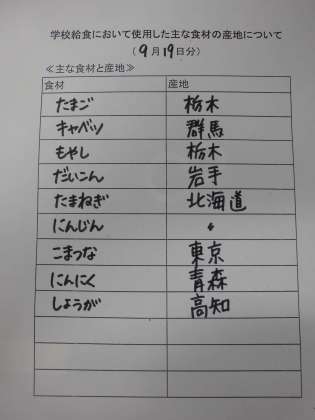 学校給食において使用した主な食材の産地について
（9月19日分）
≪主な食材と産地≫
食材 産地
たまご 栃木
キャベツ 群馬
もやし 栃木
だいこん 岩手
たまねぎ 北海道
にんじん 〃
こまつな 東京
にんにく 青森
しょうが 高知